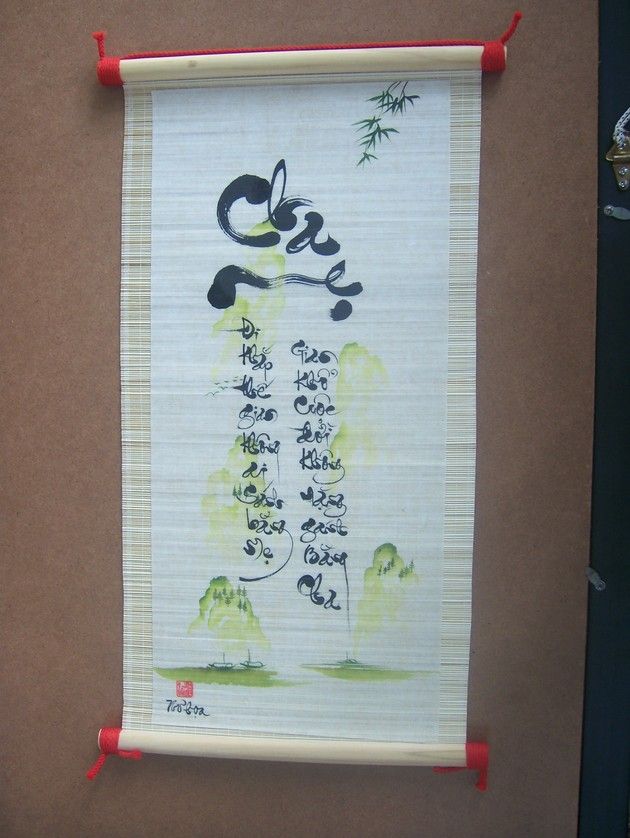 Cha
Mẹ
Đi khắp thế gian không ai sánh bằng Mẹ
Gian khổ cuộc đời không nặng gánh bằng Cha